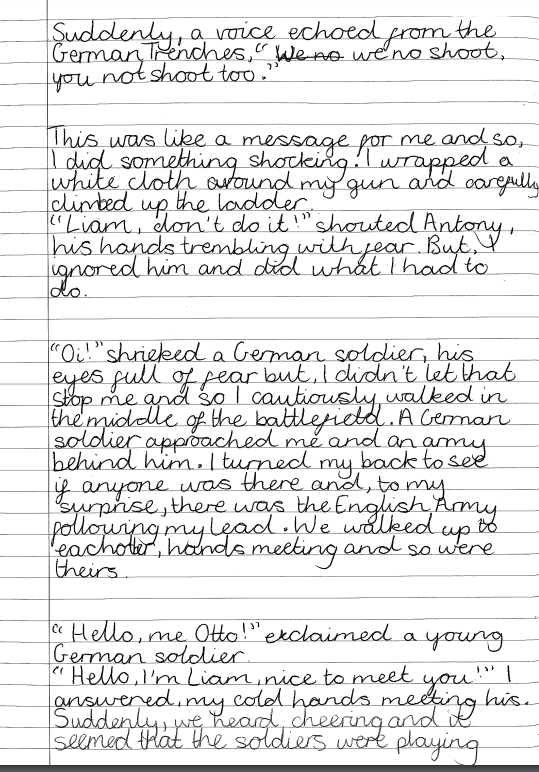 Suddenly, a voice echoed from the
German Trenches, " We no we no shoot,
you not shoot too."
This was like a message for me and so,
I did something shocking. I wrapped a
white cloth around my gun and carefully
climbed up the ladder.
"Liam, don't do it!" shouted Antony,
his hands trembling with fear. But, I
ignored him and did what I had to
do.
"Oi!" shrieked a German soldier, his
eyes full of fear but, I didn't let that
stop me and so I cautiously walked in
the middle of the battlefield. A German
soldier approached me and an army
behind him. I turned my back to see
if anyone was there and, to my
surprise, there was the English Army
following my lead. We walked up to
eachother, hands meeting and so were
theirs.
" Hello, me Otto!" exclaimed a young
German soldier.
" Hello, I'm Liam, nice to meet you!" I
answered, my cold hands meeting his.
Suddenly, we heard cheering and it
seemed that the soldiers were playing